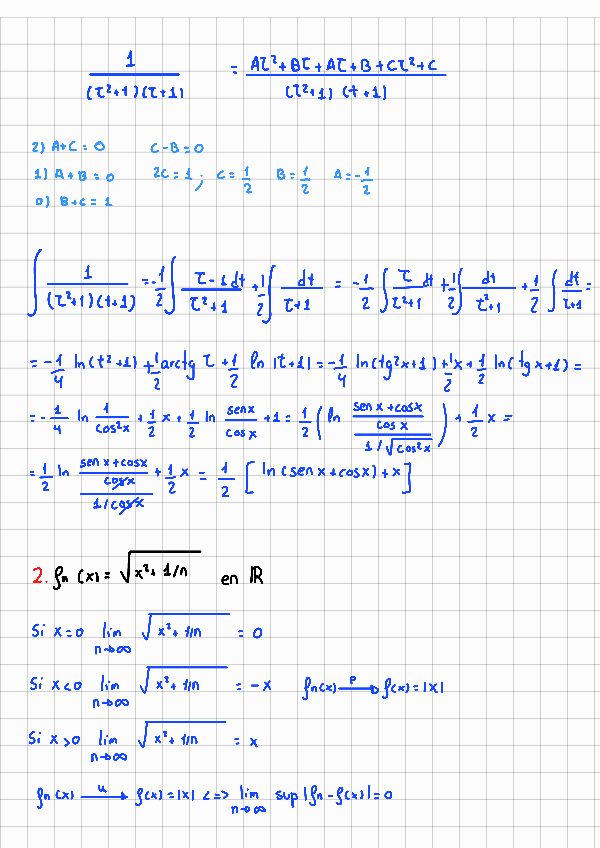 1/((τ²+1)(τ+1)) = (Aτ²+Bτ+Aτ+B+Cτ²+C)/((τ²+1)(t+1))
2) A+C=0 C-B=0
1) A+B=0 2C=1; C=1/2 B=1/2 A=-1/2
0) B+C=1
∫ 1/((τ²+1)(t+1)) = -1/2 ∫ (τ-1 dt)/(τ²+1) + 1/2 ∫ dt/(τ+1) = -1/2 ∫ τ/(τ²+1) dt + 1/2 ∫ dt/(τ²+1) + 1/2 ∫ dt/(τ+1) =
= -1/4 ln(t²+1) + 1/2 arctg τ + 1/2 ln |τ+1| = -1/4 ln(tg²x+1) + 1/2 x + 1/2 ln(tgx+1) =
= -1/4 ln 1/cos²x + 1/2 x + 1/2 ln senx/cosx + 1 = 1/2 (ln ((senx+cosx)/cosx)/(1/√cos²x)) + 1/2 x =
= 1/2 ln ((senx+cosx)/cosx)/(1/cosx) + 1/2 x = 1/2 [ln(senx+cosx)+x]
2. fn(x) = √(x²+1/n) en ℝ
Si x=0 lim n→∞ √(x²+1/n) = 0
Si x<0 lim n→∞ √(x²+1/n) = -x fn(x) →p f(x)=|x|
Si x>0 lim n→∞ √(x²+1/n) = x
fn(x) →u f(x)=|x| <=> lim n→∞ sup |fn-f(x)|=0